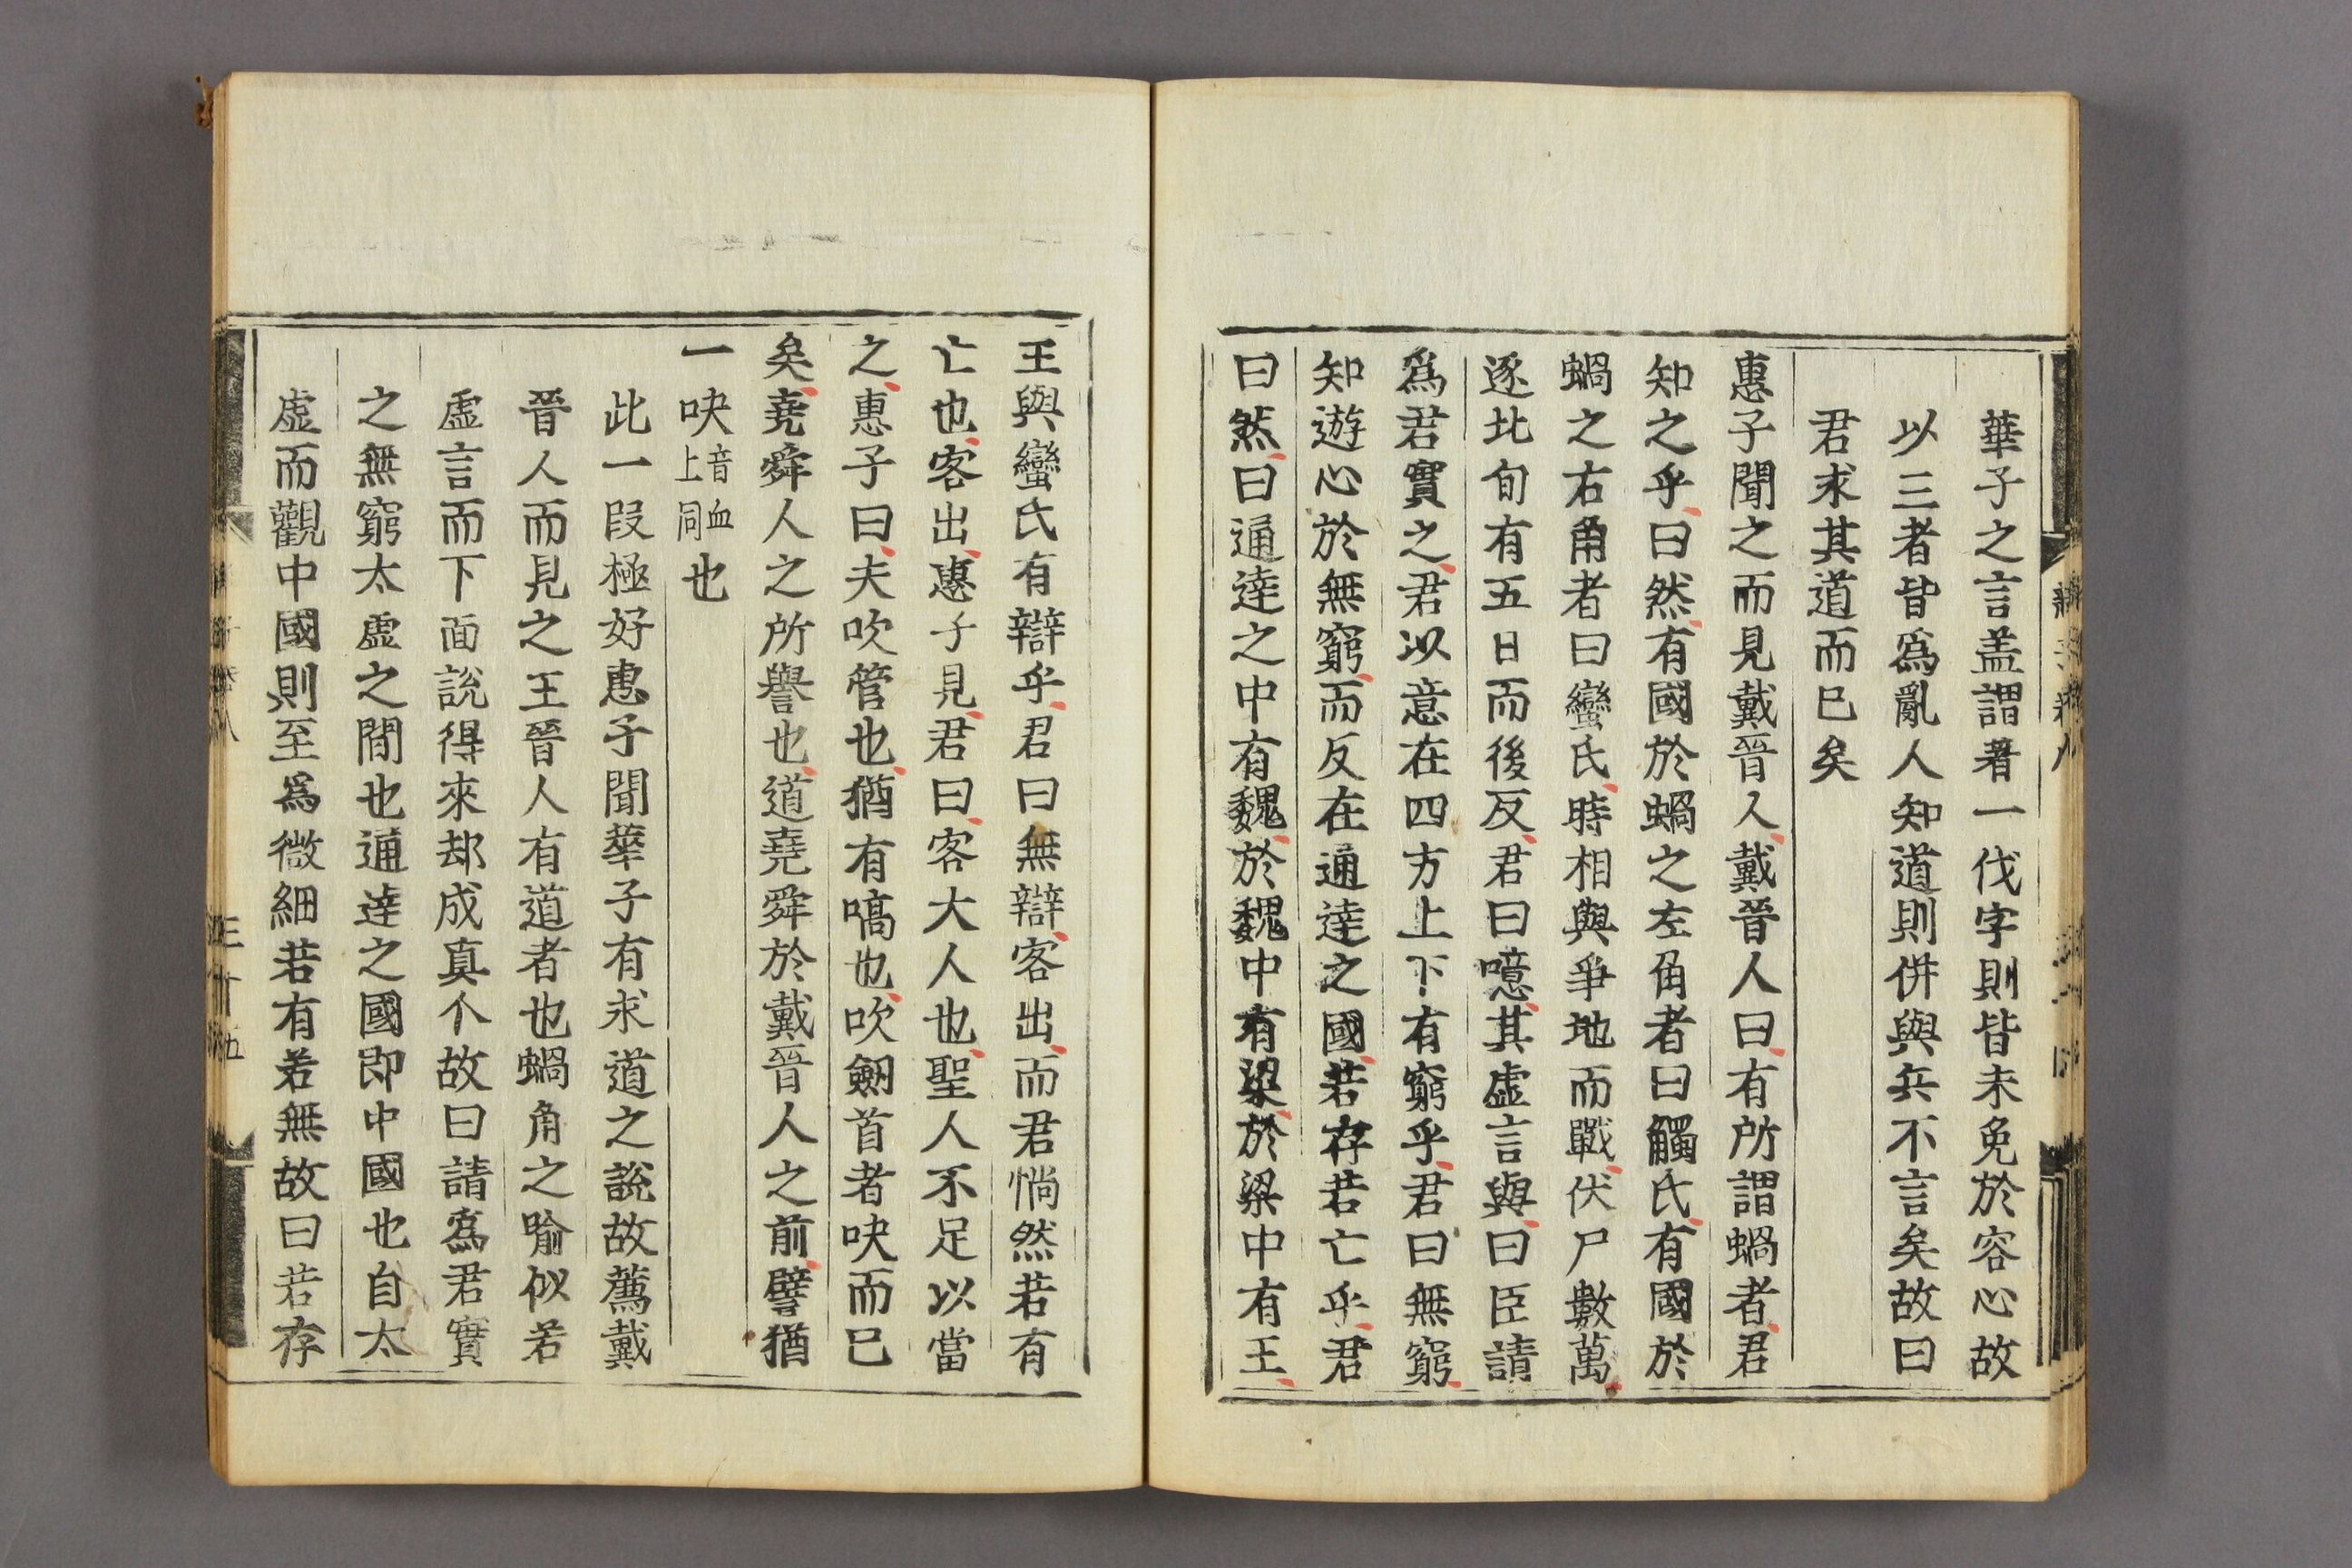 華子之言盖謂著一伐字則皆未免於容心故
以三者皆爲亂人知道則併與兵不言矣故曰
君求其道而已矣
惠子聞之而見戴晉人戴晉人曰有所謂蝸者君
知之乎曰然有國於蝸之左角者曰觸氏有國於
蝸之右角者曰蠻氏時相與爭地而戰伏尸數萬
逐北旬有五日而後反君曰噫其虛言與曰臣請
爲君實之君以意在四方上下有窮乎君曰無窮
知遊心於無窮而反在通逹之國若存若亡乎君
曰然曰通逹之中有魏於魏中有梁於梁中有王
王與蠻氏有辯乎君曰無辯客出而君惝然若有
亡也客出惠子見君曰客大人也聖人不足以當
之惠子曰夫吹管也猶有嗃也吹劒首者吷而已
矣堯舜人之所譽也道堯舜於戴晉人之前譬猶
一吷音血上同也
此一段極好惠子聞華子有求道之說故薦戴
晉人而見之王晉人有道者也蝸角之喻似若
虛言而下面說得來却成真个故曰請爲君實
之無窮太虛之間也通逹之國即中國也自太
虛而觀中國則至爲微細若有若無故曰若存